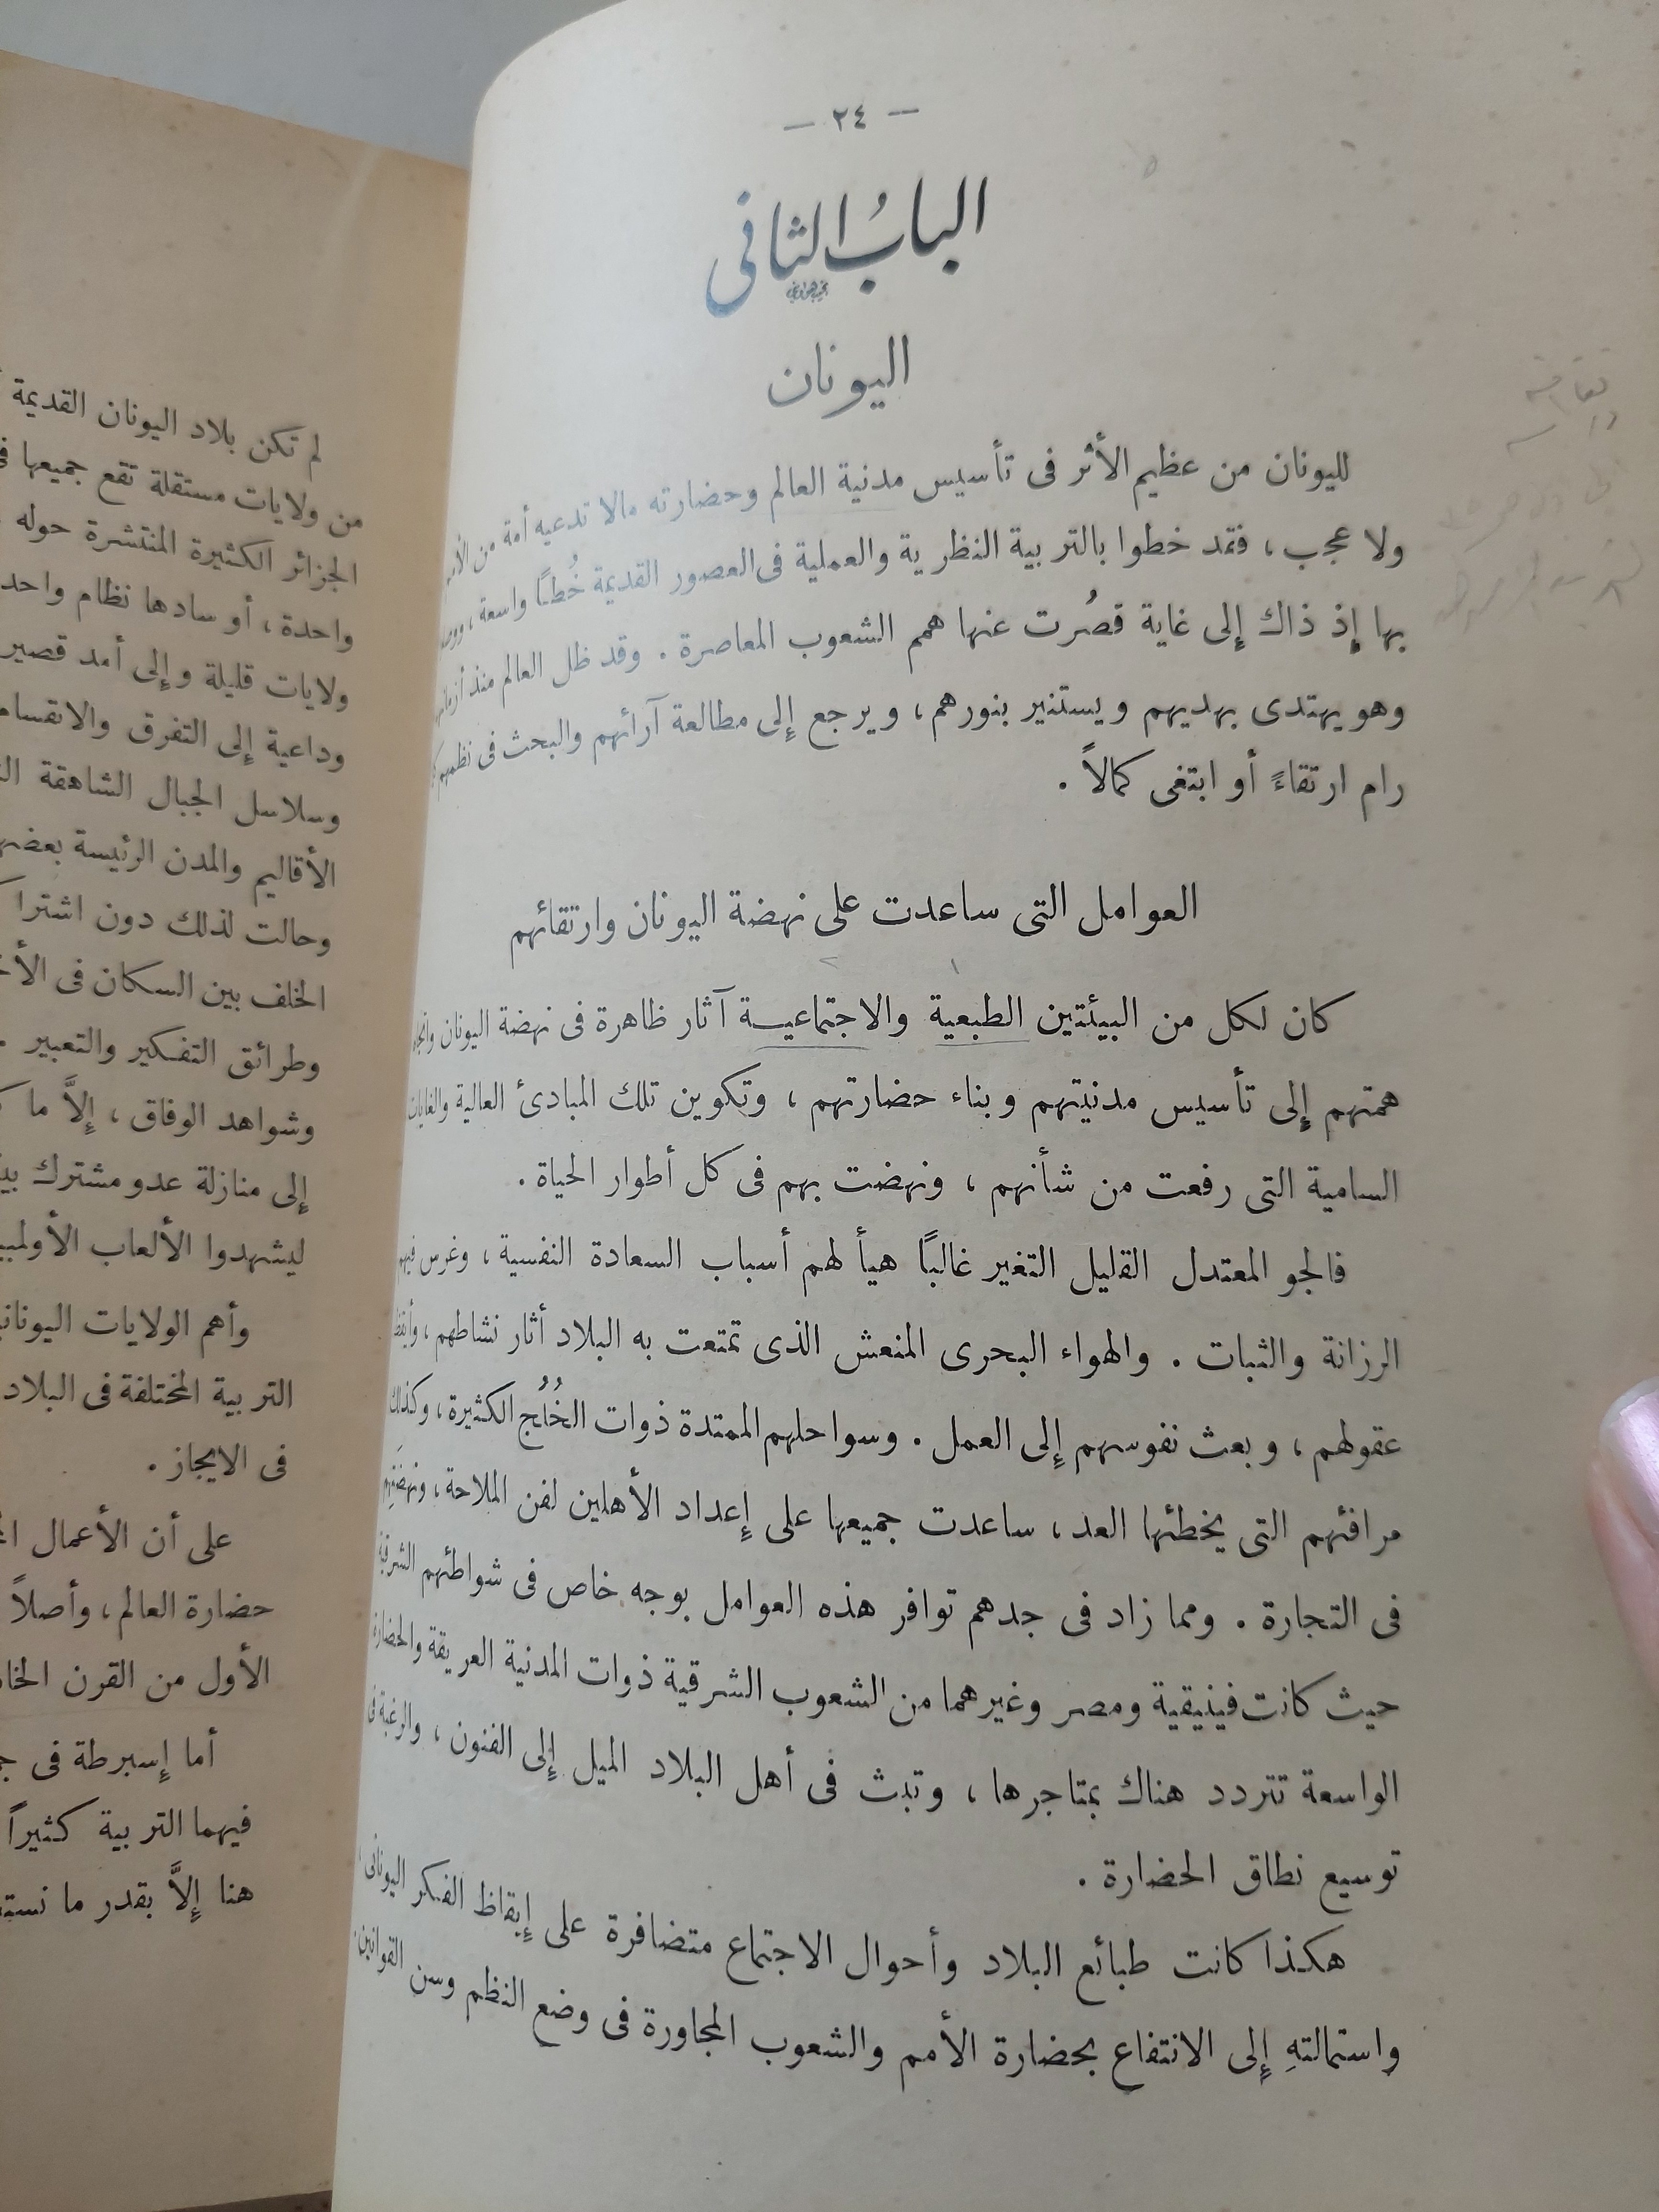 — ٢٤ —
الباب الثانى
اليونان
لليونان من عظيم الأثر فى تأسيس مدنية العالم وحضارته مالا تدعيه أمة من
ولا عجب ، فقد خطوا بالتربية النظرية والعملية فى العصور القديمة خُطًا واسعة ،
بها إذ ذاك إلى غاية قصُرت عنها همم الشعوب المعاصرة . وقد ظل العالم منذ
وهو يهتدى بهديهم ويستنير بنورهم ، ويرجع إلى مطالعة آرائهم والبحث فى نظمهم
رام ارتقاءً أو ابتغى كمالاً .
العوامل التى ساعدت على نهضة اليونان وارتقائهم
كان لكل من البيئتين الطبعية والاجتماعيـــة آثار ظاهرة فى نهضة اليونان
همتهم إلى تأسيس مدنيتهم وبناء حضارتهم ، وتكوين تلك المبادئ العالية والغايات
السامية التى رفعت من شأنهم ، ونهضت بهم فى كل أطوار الحياة .
فالجو المعتدل القليل التغير غالبًا هيأ لهم أسباب السعادة النفسية ، وغرس فيهم
الرزانة والثبات . والهواء البحرى المنعش الذى تمتعت به البلاد أثار نشاطهم ،
عقولهم ، وبعث نفوسهم إلى العمل . وسواحلهم الممتدة ذوات الخُلُج الكثيرة ، وكذلك
مرافئهم التى يخطئها العد ، ساعدت جميعها على إعداد الأهلين لفن الملاحة ،
فى التجارة . ومما زاد فى جدهم توافر هذه العوامل بوجه خاص فى شواطئهم الشرقية
حيث كانت فينيقية ومصر وغيرهما من الشعوب الشرقية ذوات المدنية العريقة والحضارة
الواسعة تتردد هناك بمتاجرها ، وتبث فى أهل البلاد الميل إلى الفنون ، والرغبة فى
توسيع نطاق الحضارة .
هكذا كانت طبائع البلاد وأحوال الاجتماع متضافرة على إيقاظ الفكر اليونانى ،
واستمالتهِ إلى الانتفاع بحضارة الأمم والشعوب المجاورة فى وضع النظم وسن القوانين .
لم تكن بلاد اليونان القديمة
من ولايات مستقلة تقع جميعها
الجزائر الكثيرة المنتشرة حوله
واحدة ، أو سادها نظام واحد
ولايات قليلة وإلى أمد قصير
وداعية إلى التفرق
وسلاسل الجبال الشاهقة
الأقاليم والمدن الرئيسة
وحالت لذلك دون
الخلف بين السكان فى
وطرائق التفكير والتعبير .
وشواهد الوفاق ، إلاَّ ما
إلى منازلة عدو مشترك
ليشهدوا الألعاب
وأهم الولايات
التربية المختلفة فى البلاد
فى الايجاز .
على أن الأعمال
حضارة العالم ، وأصلاً
الأول من القرن
أما إسبرطة فى
فيهما التربية كثيراً
هنا إلاَّ بقدر ما